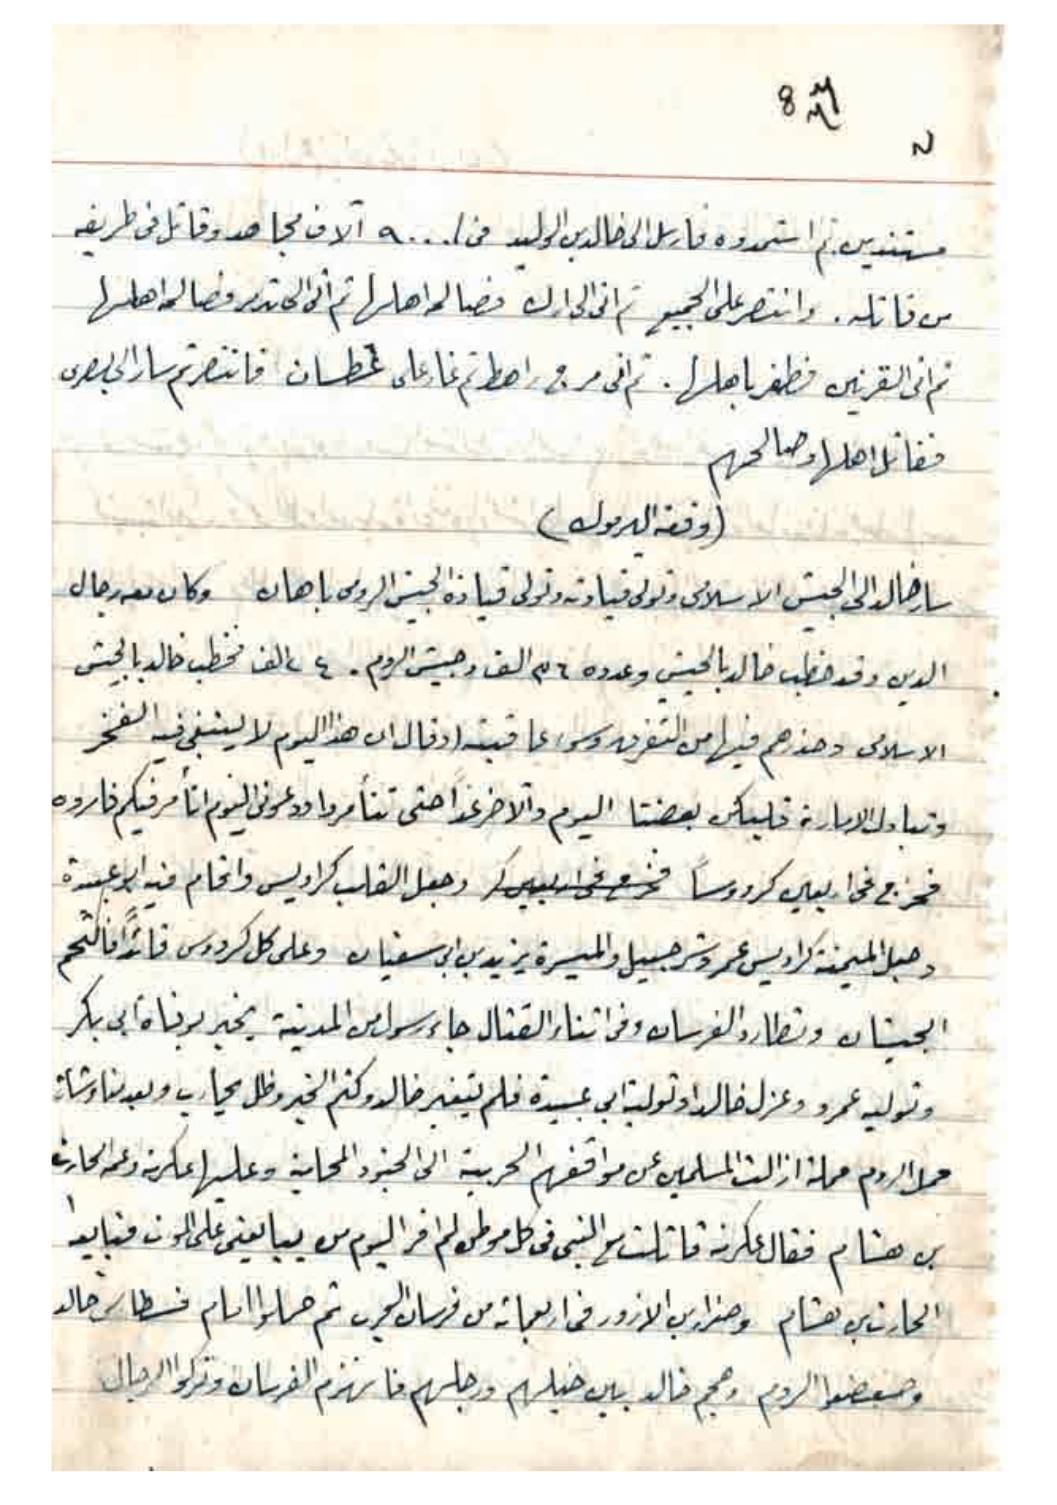 8
مستنديين ثم استمدوه فارسل الى خالد بن الوليد فى ٩٠٠٠ آلاف مجاهد وقاتل فى طريقه
من قاتله . وانتصر على الجميع ثم اتى الى ارك فصالحه اهلها ثم أتى الى تدمر فصالحه اهلها
ثم اتى القريتين فظفر باهلها . ثم اتى مرج راهط ثم غار على غسان فانتصر ثم سار الى بصرى
فقاتل اهلها وصالحهم
(وقعة اليرموك)
سار خالد الى الجيش الاسلامى وتولى قيادته وتولى قيادة الجيش الرومى باهان وكان معه رجال
الدين وقد خطب خالد بالجيش وعدده ٣٦ الف وجيش الروم ٢٤٠ الف فخطب خالد بالجيش
الاسلامى وحذرهم فيها من التفرق وسوء عاقبته اذ قال ان هذا اليوم لا ينبغى فيه الفخر
وتبادل الامارة فليكن بعضنا اليوم والآخر غداً حتى تتأمروا ودعونى اليوم اتأمر فيكم فاروه
فخرج فى اربعين كردوساً فخرج فى اربعين كر وجعل القلب كراديس واقام فيه ابو عبيدة
وجعل الميمنة كراديس عمر وشرحبيل والميسرة يزيد بن ابى سفيان وعلى كل كردوس قائداً فالتحم
الجيشان وتطارد الفرسان وفى اثناء القتال جاء رسول من المدينة يخبر بوفاة ابى بكر
وتوليه عمرو وعزل خالد وتولية ابى عبيدة فلم يتغير خالد وكتم الخبر وظل يحارب وبعد مناوشات
حمل الروم حملة ازالت المسلمين عن مواقفهم الحربية الى الجنود المحامية وعليها عكرمة وعمه الحارث
بن هشام فقال عكرمة قاتلت مع النبى فى كل موطن ثم افر اليوم من يبايعنى على الموت فبايعه
الحارث بن هشام وضرار بن الازور فى اربعمائة من فرسان العرب ثم حملوا امام فسطاط خالد
وضعضعوا الروم وهجم خالد بين خيلهم ورجلهم فانهزم الفرسان وتركوا الرجال